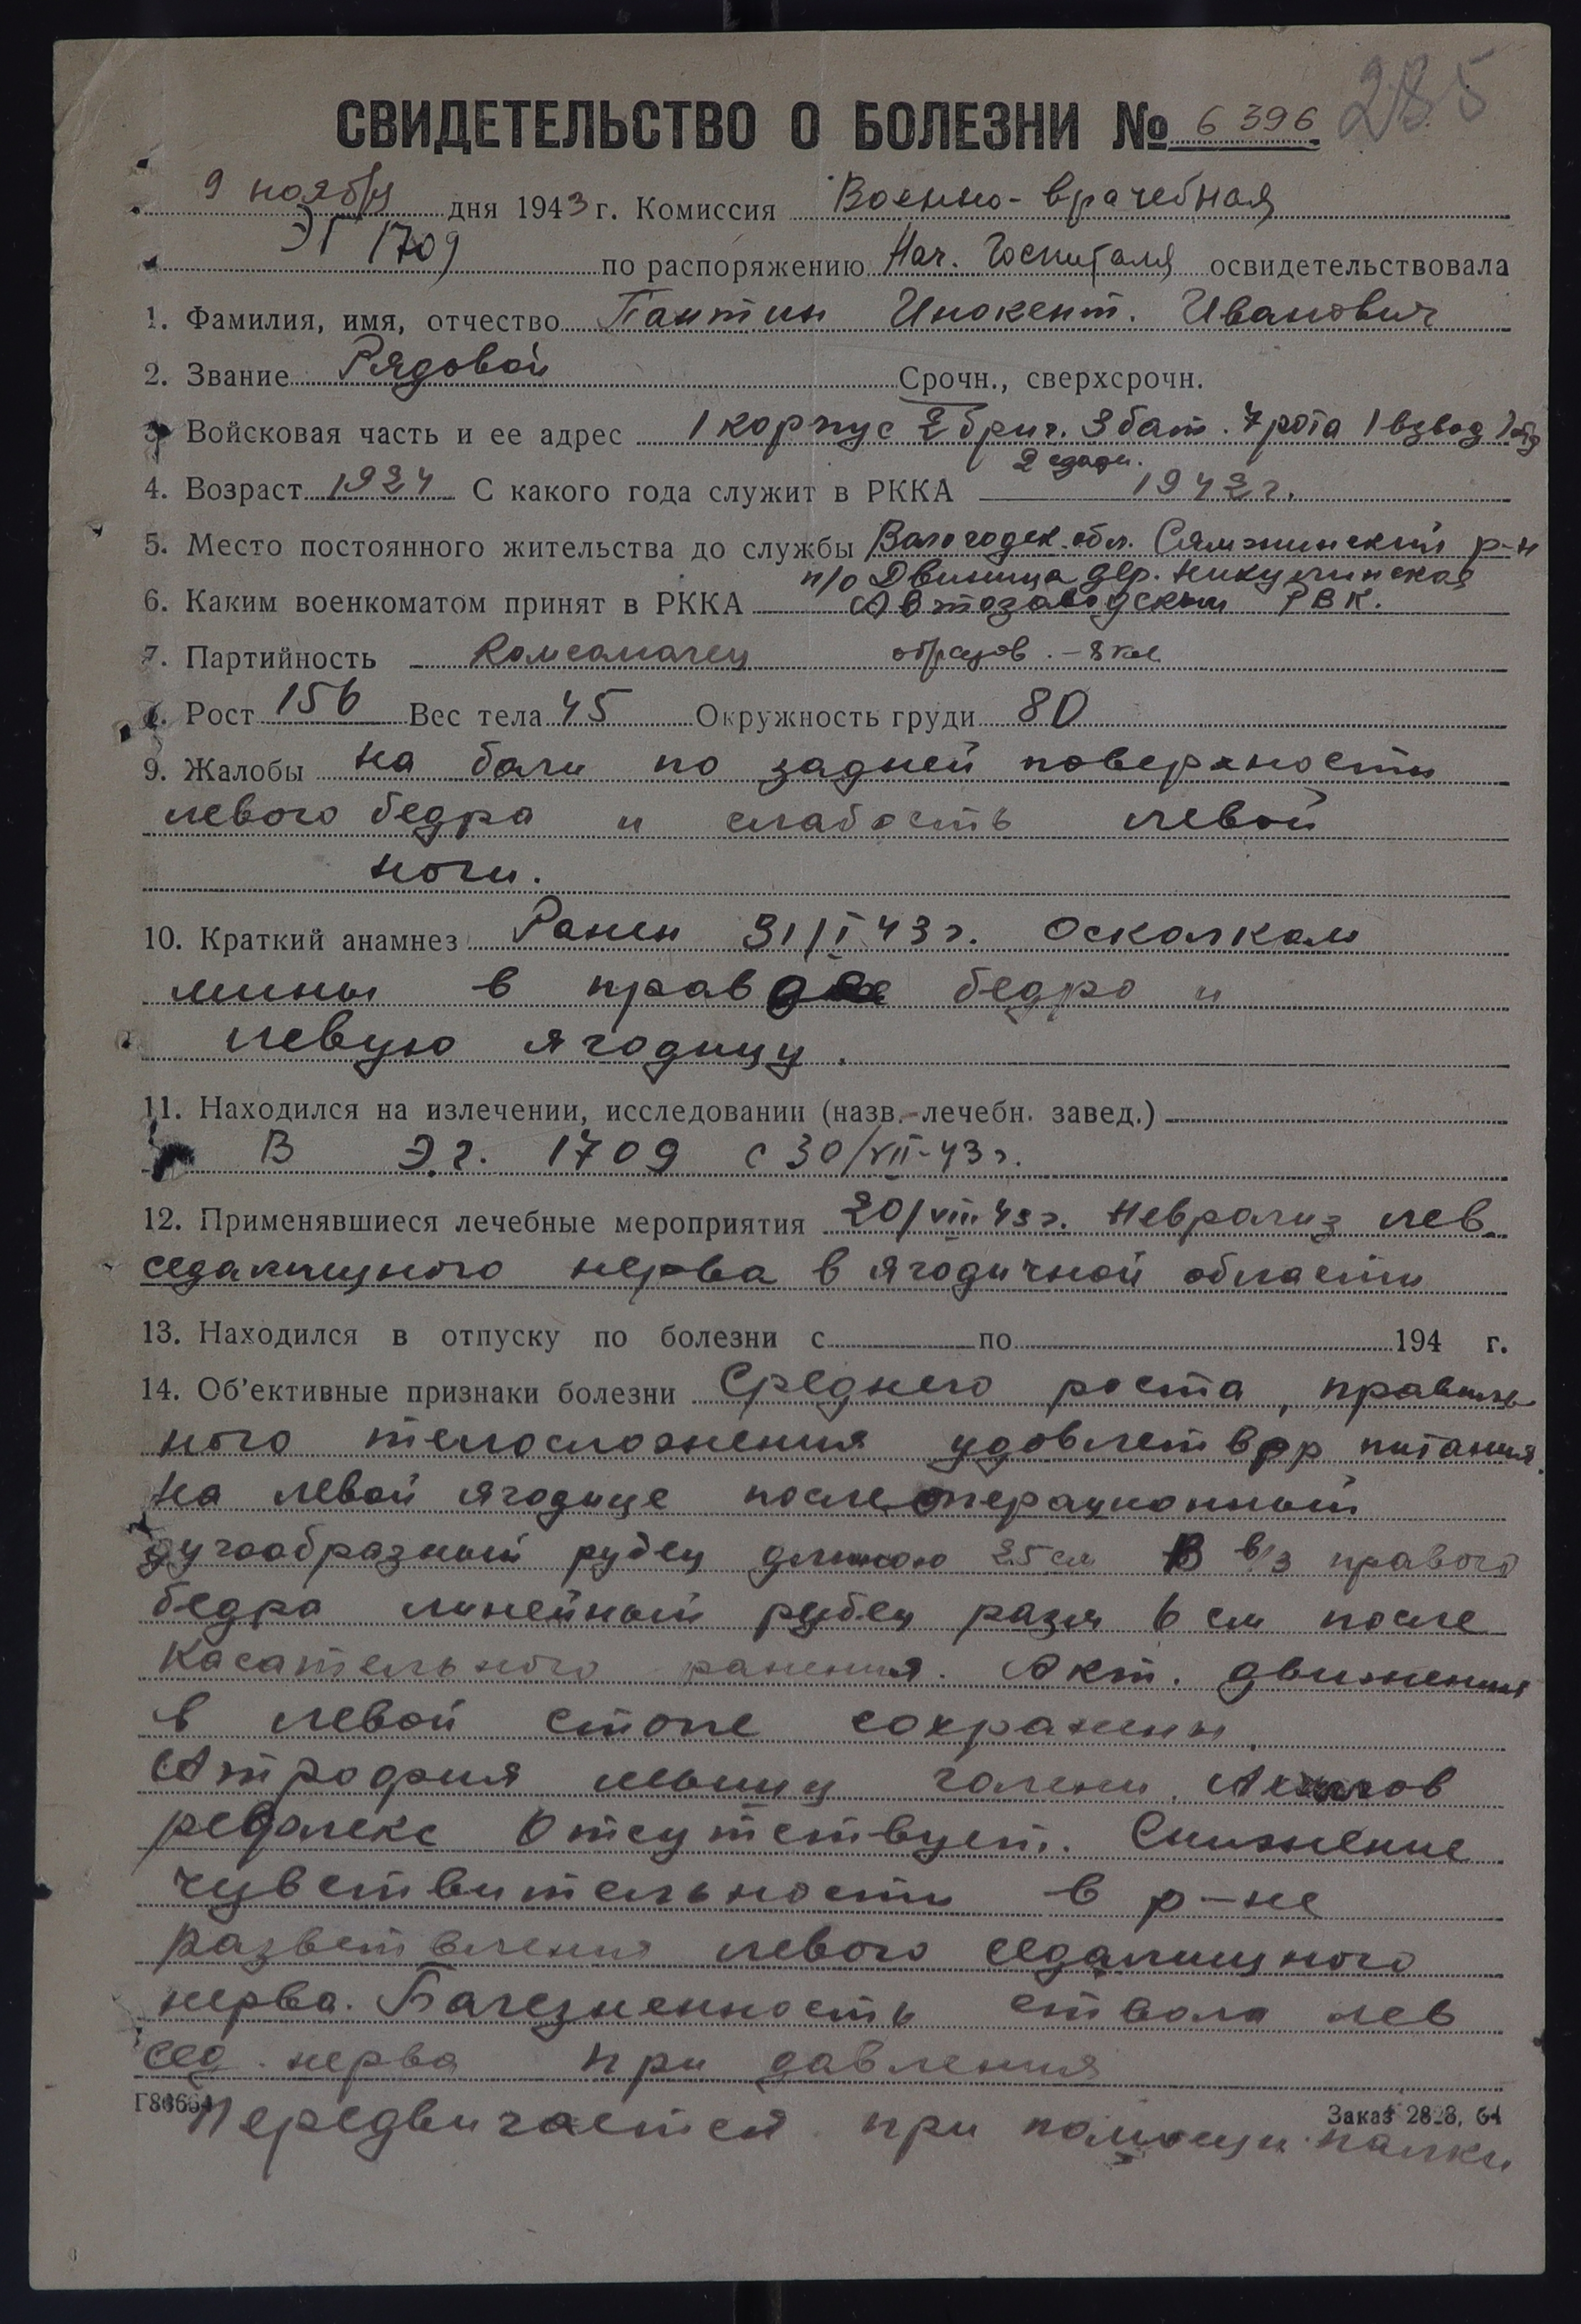 СВИДЕТЕЛЬСТВО О БОЛЕЗНИ № 6396 285
9 ноября дня 1943 г. Комиссия Военно-врачебная
ЭГ 1709 по распоряжению Нач. Госпиталя освидетельствовала
1. Фамилия, имя, отчество Пантин Инокент. Иванович
2. Звание Рядовой Срочн., сверхсрочн.
3. Войсковая часть и ее адрес 1 корпус 2 бриг. 3 бат. 7 рота 1 взвод
4. Возраст 1924 С какого года служит в РККА 1942 г.
5. Место постоянного жительства до службы Вологодск. обл. Сямжинский р-н
п/о Двиница дер. Никулинская
6. Каким военкоматом принят в РККА Автозаводским РВК.
7. Партийность Комсомолец образов. - 8 кл
8. Рост 156 Вес тела 45 Окружность груди 80
9. Жалобы на боли по задней поверхности
левого бедра и слабость левой
ноги.
10. Краткий анамнез Ранен 31/I 43 г. Осколком
мины в правое бедро и
левую ягодицу.
11. Находился на излечении, исследовании (назв. лечебн. завед.)
В Э.г. 1709 с 30/VII-43 г.
12. Применявшиеся лечебные мероприятия 20/VIII 43 г. Невролиз лев.
седалищного нерва в ягодичной области
13. Находился в отпуску по болезни с по 194 г.
14. Об'ективные признаки болезни Среднего роста, правиль
ного телосложения удовлетвор питания.
На левой ягодице послеоперационный
дугообразный рубец длиною 25 см В в/3 правого
бедра линейный рубец разм 6 см после
касательного ранения. Акт. движения
в левой стопе сохранены.
Атрофия мышц голени. Ахилов
рефлекс отсутствует. Снижение
чувствительности в р-не
разветвления левого седалищного
нерва. Болезненность ствола лев
сед. нерва при давления
Г83664 Заказ 2828, 64
Передвигается при помощи палки